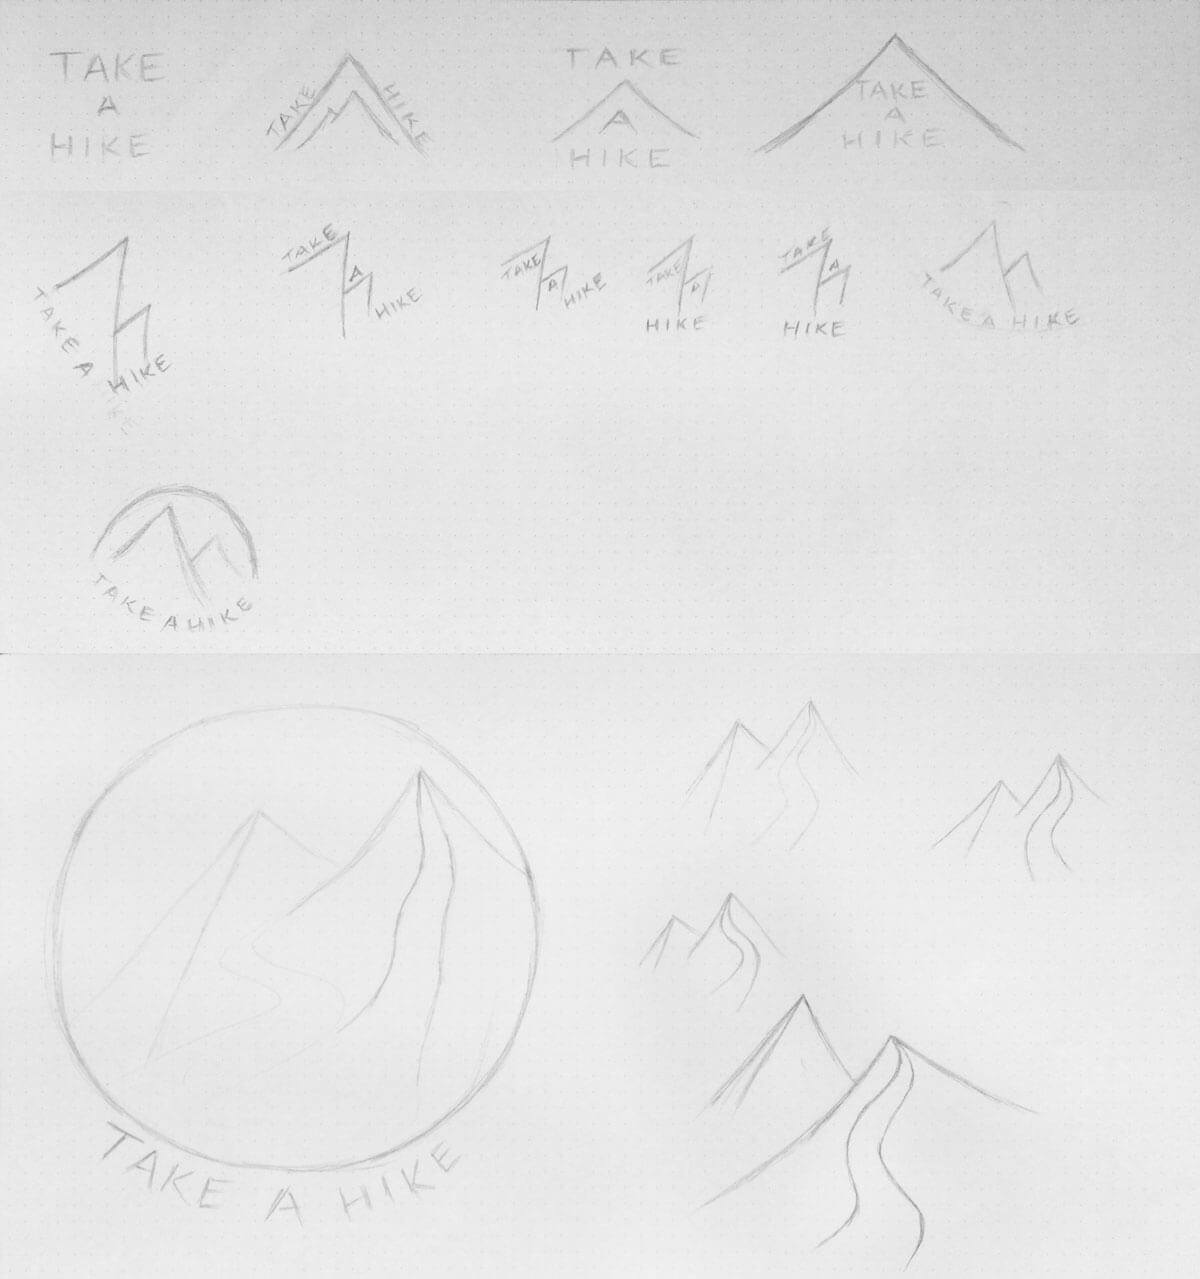 TAKE
A
HIKE
TAKE
A
HIKE
TAKE
A
HIKE
TAKE
A
HIKE
TAKE A HIKE
TAKE
A
HIKE
TAKE
A
HIKE
TAKE
A
HIKE
TAKE
A
HIKE
TAKE A HIKE
TAKE A HIKE
TAKE A HIKE